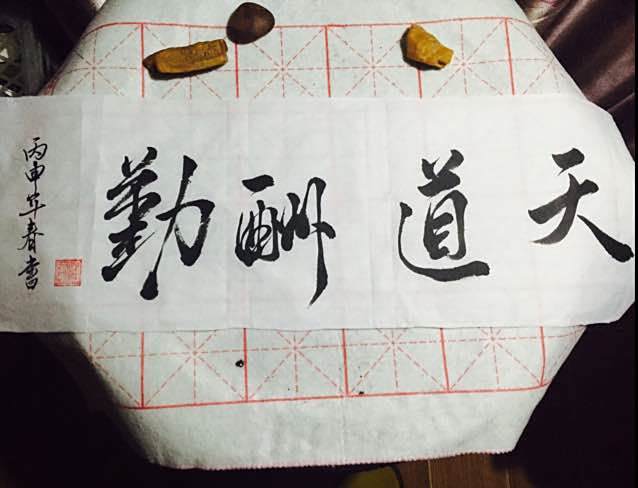 天道酬勤
丙申年春書